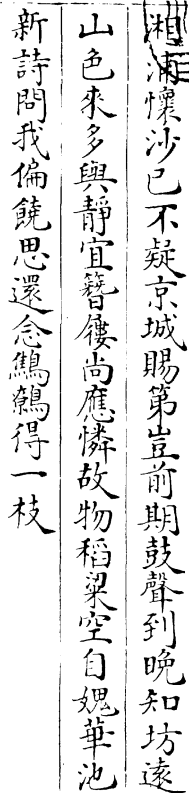 湘浦懷沙已不疑京城賜第豈前期鼓聲到晚知坊遠
山色來多與靜宜簪屨尚應憐故物稻粱空自媿華池
新詩問我偏饒思還念鷦鷯得一枝